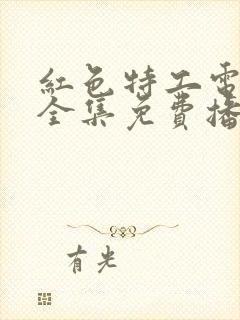 紅色特工電
全集免費播
有光